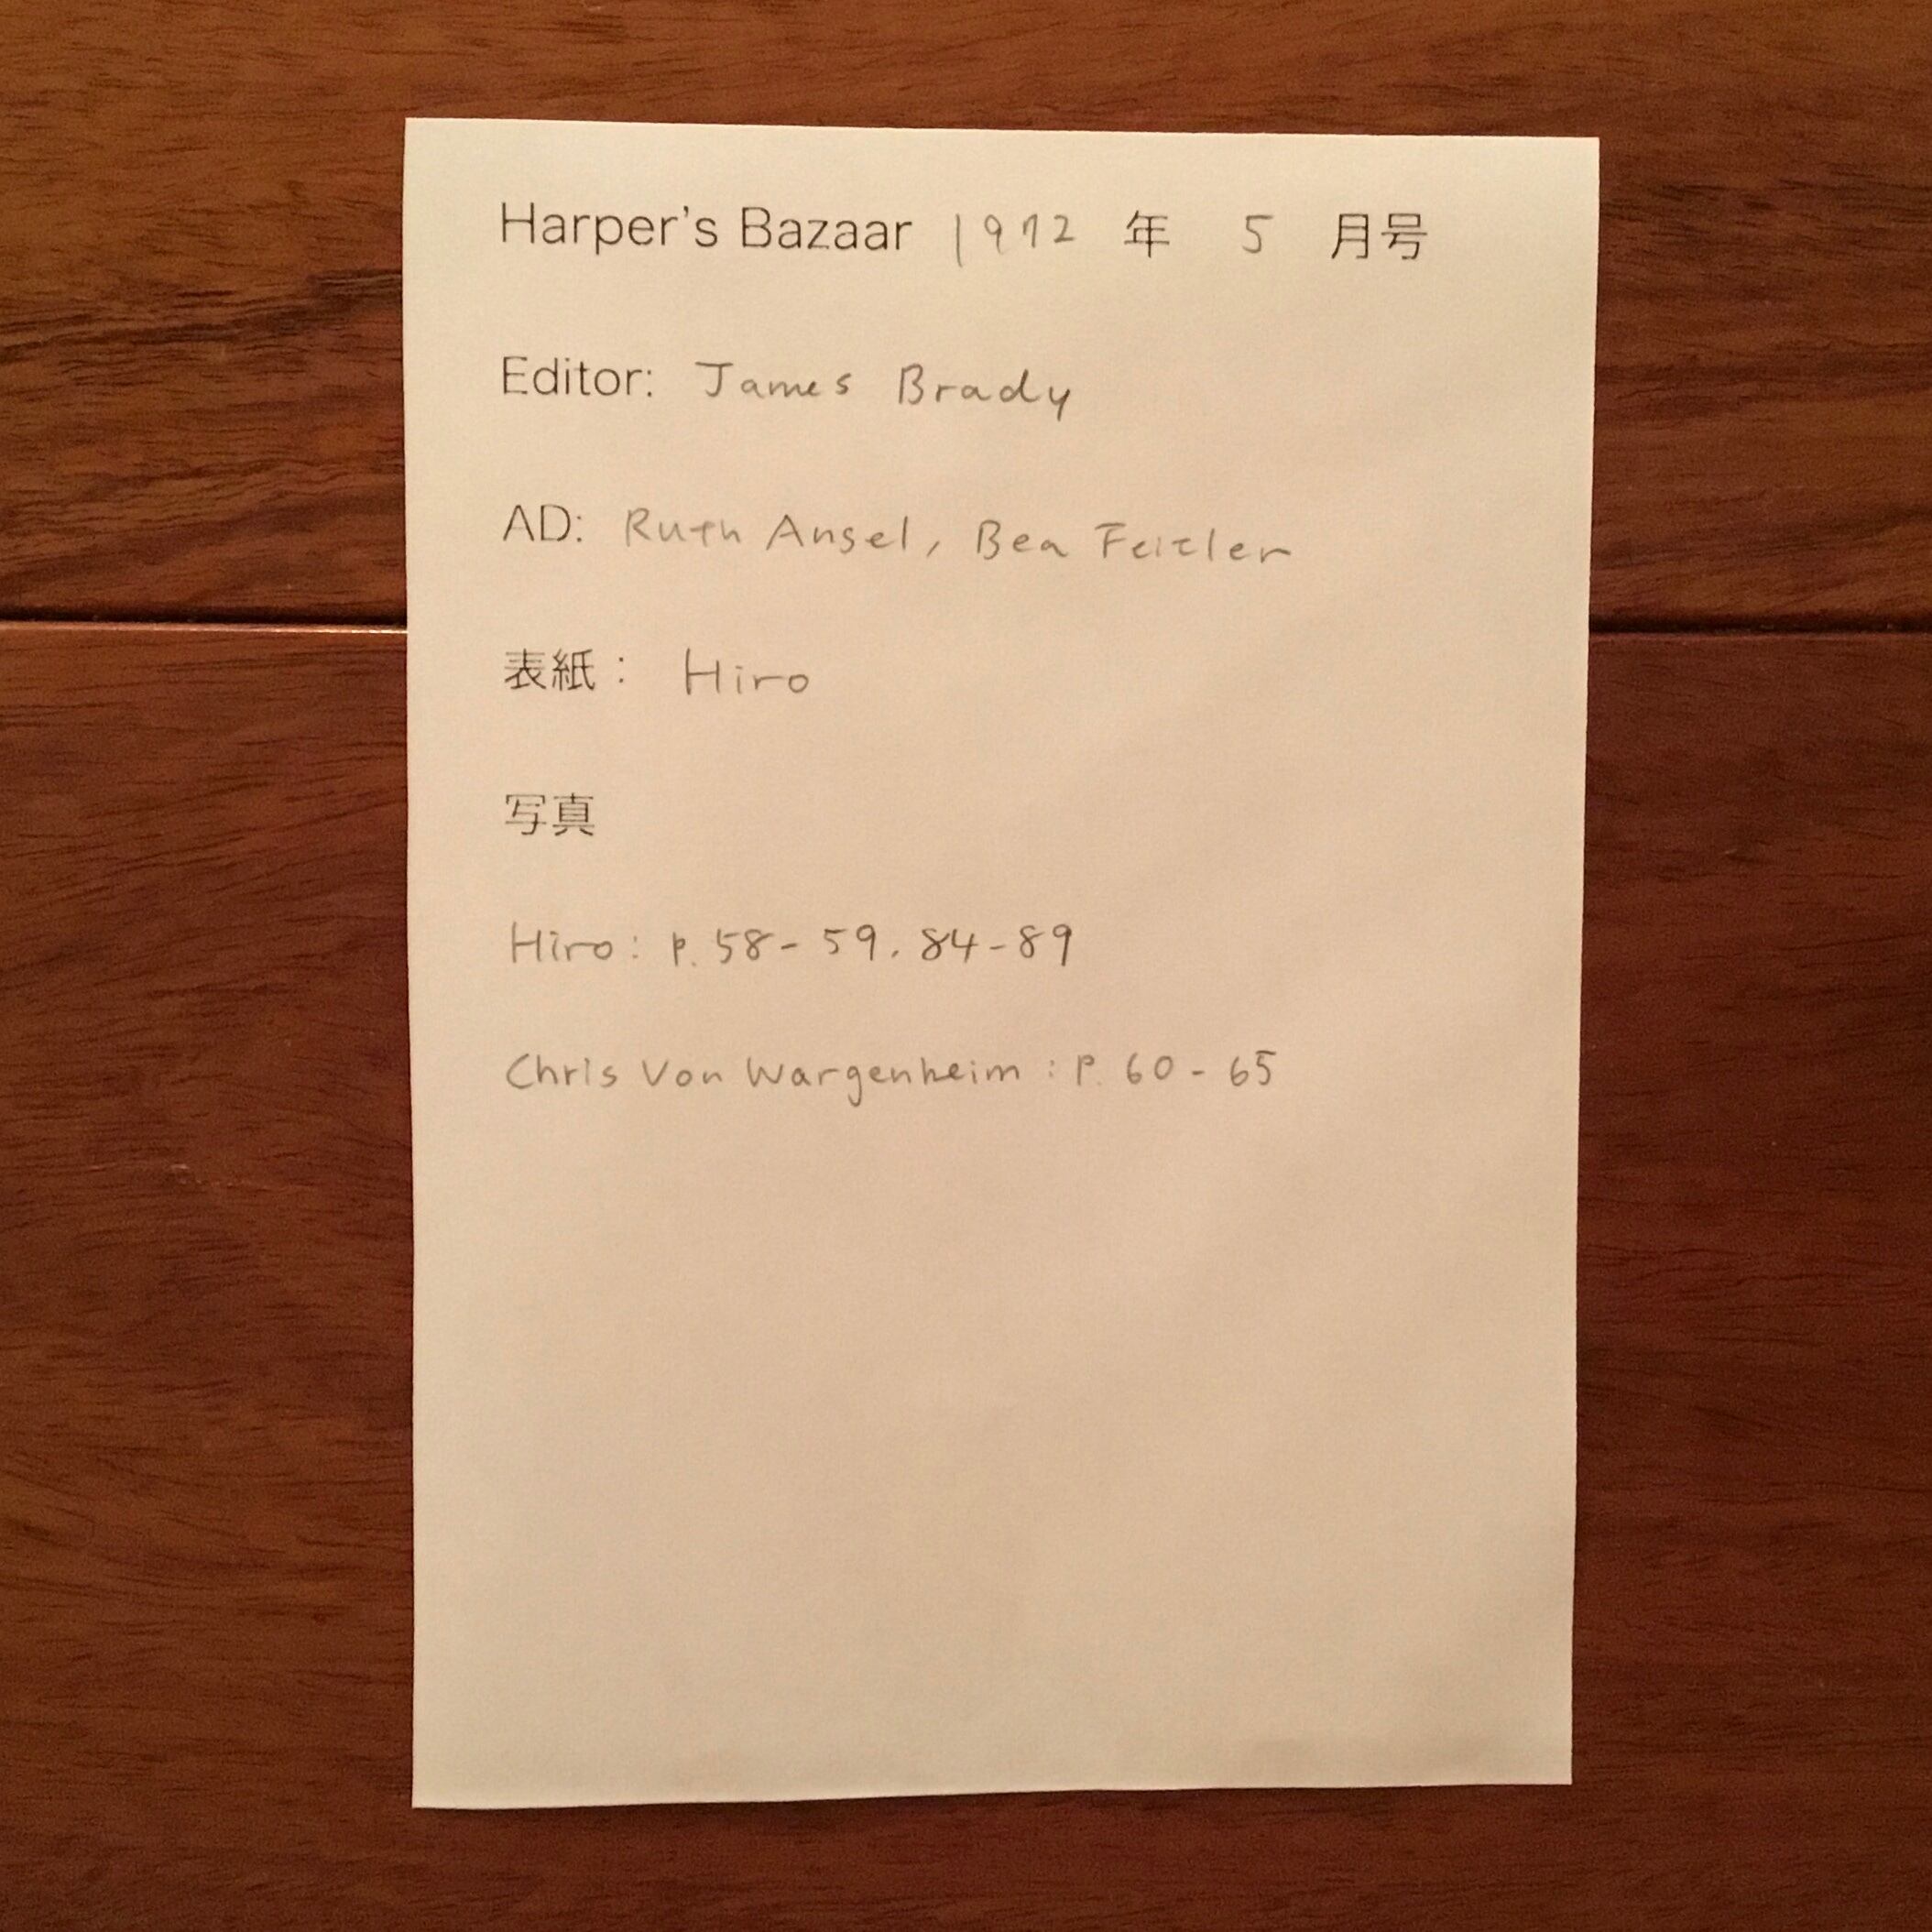 Harper's Bazaar 1972 年 5 月号
Editor: James Brady
AD: Ruth Ansel, Bea Feitler
表紙： Hiro
写真
Hiro: p. 58-59. 84-89
Chris Von Wargenheim: p. 60-65